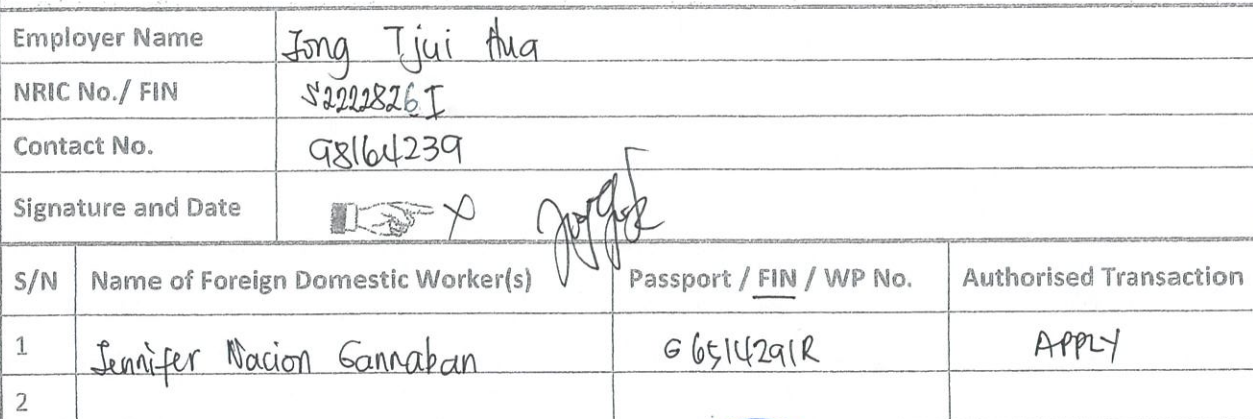 Employer Name Jong Tjui Hua
NRIC No./ FIN S2222826I
Contact No. 98164239
Signature and Date X
S/N Name of Foreign Domestic Worker(s) Passport / FIN / WP No. Authorised Transaction
1 Jennifer Nacion Gannaban G6514291R APPLY
2